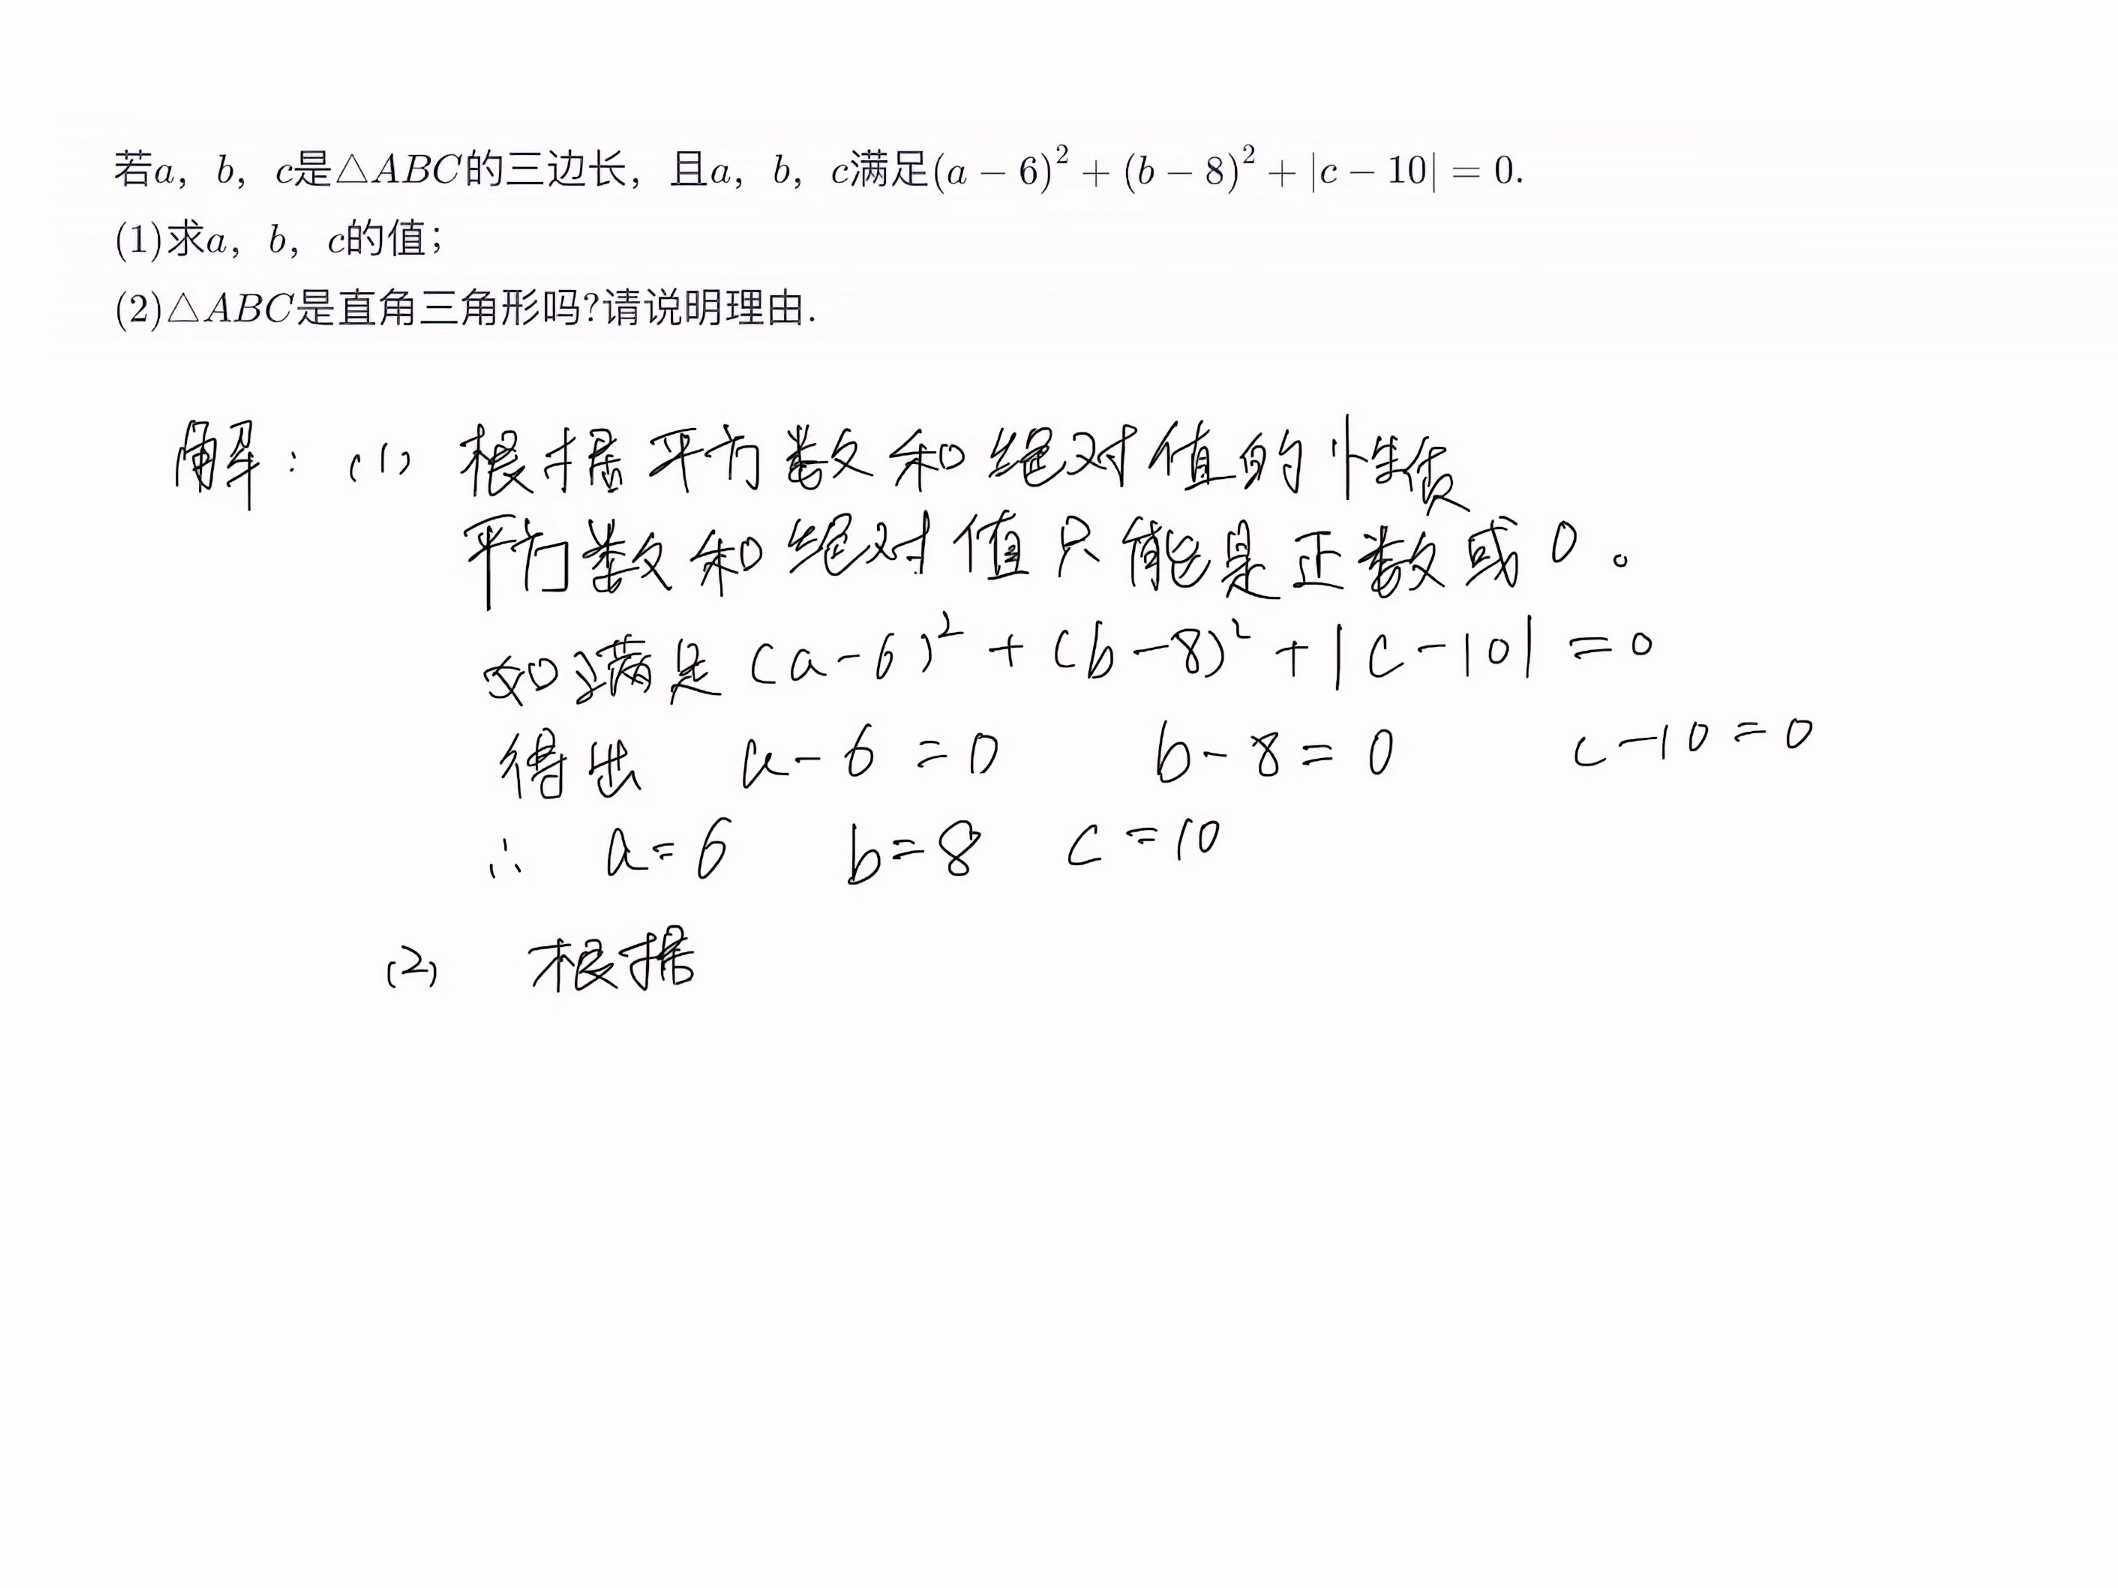 若a，b，c是△ABC的三边长，且a，b，c满足(a − 6)² + (b − 8)² + |c − 10| = 0.
(1)求a，b，c的值；
(2)△ABC是直角三角形吗?请说明理由.
解：(1) 根据平方数和绝对值的性质
平方数和绝对值只能是正数或0。
如满足 (a-6)² + (b-8)² + |c-10| = 0
得出 a-6=0 b-8=0 c-10=0
∴ a=6 b=8 c=10
(2) 根据